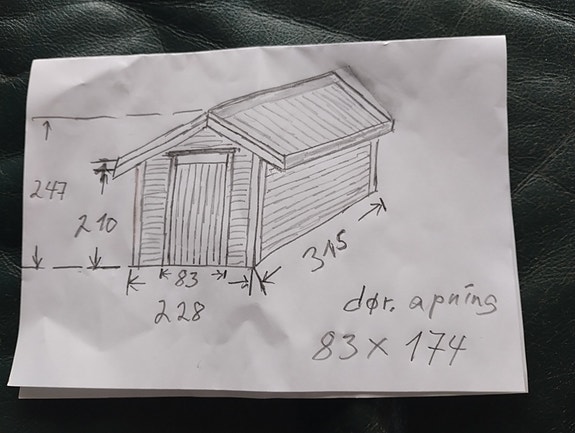 247
210
83
228
315
dør. apning
83 x 174